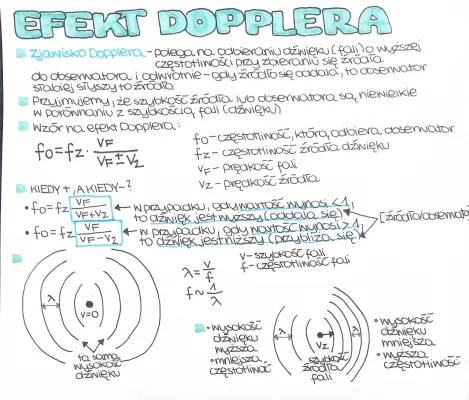 EFEKT DOPPLERA
Zjawisko Dopplera - polega na odbieraniu dźwięku (fali) o wyższej
częstotliwości przy zbieraniu się źródła
do obserwatora i odwrotnie - gdy źródło się oddala, to obserwator
słabiej słyszy to źródło
Przyjmujemy, że szybkość źródła lub obserwatora są niewielkie
w porównaniu z szybkością fali (dźwięku)
Wzór na efekt Dopplera:
fo = fz · VF / VF ± Vz
fo - częstotliwość, którą odbiera obserwator
fz - częstotliwość źródła dźwięku
VF - prędkość fali
Vz - prędkość źródła
KIEDY +, A KIEDY -?
fo = fz VF / VF + Vz ← w przypadku, gdy wartość wynosi < 1,
to dźwięk jest wyższy (oddala się)
[źródło/obserwator]
fo = fz VF / VF - Vz ← w przypadku, gdy wartość wynosi > 1,
to dźwięk jest niższy (przybliża się)
λ
V=0
ta sama
wysokość
dźwięku
λ = v / f
f ~ 1 / λ
v - szybkość fali
f - częstotliwość fali
wysokość
dźwięku
wyższa
mniejsza
częstotliwość
λ
Vz
λ
szybkość
źródła
fali
wysokość
dźwięku
mniejsza
wyższa
częstotliwość